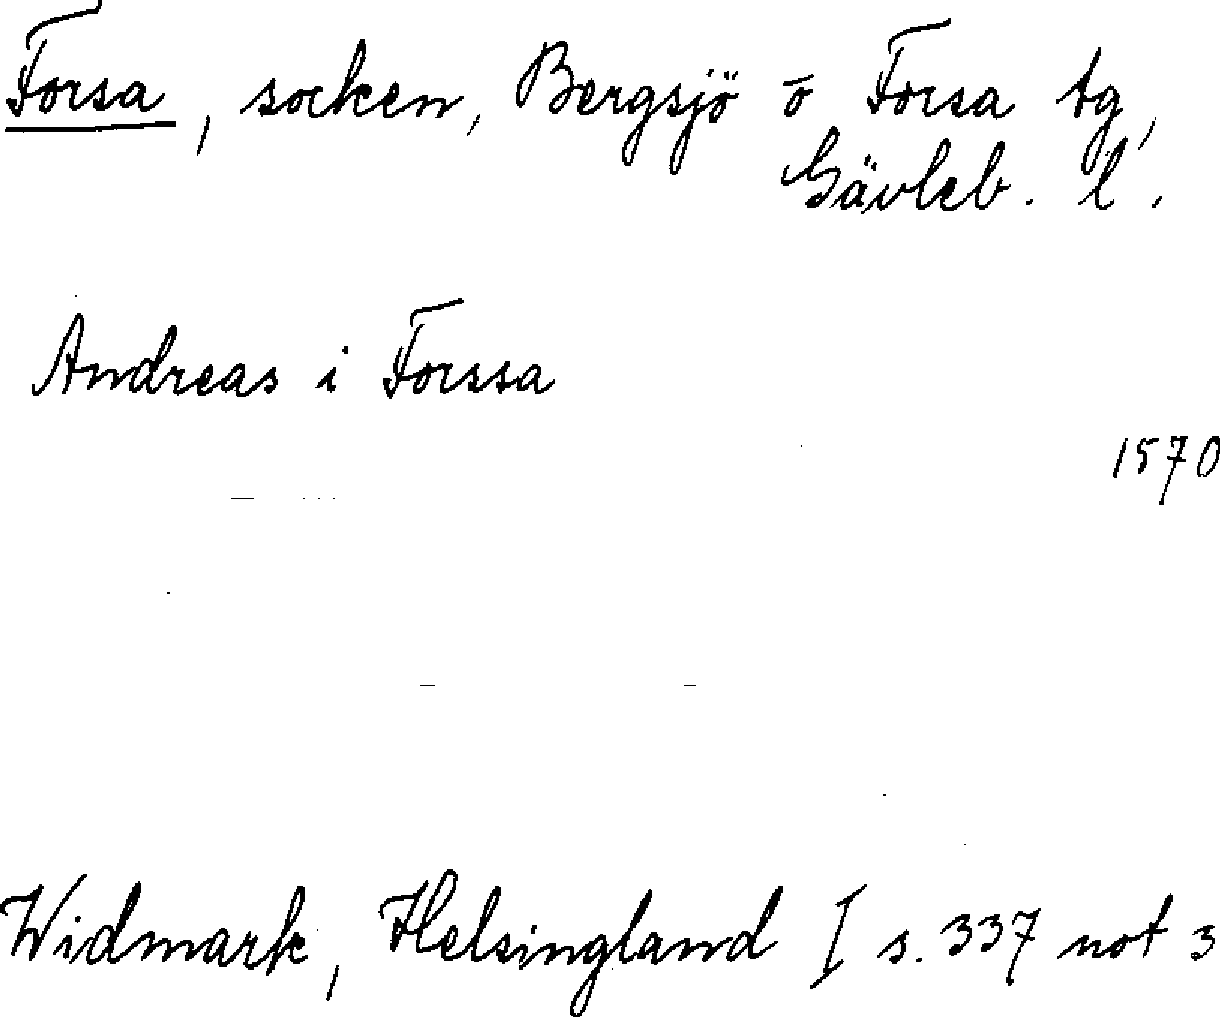 Forsa, socken, Bergsjö o Forsa tg,
Gävleb. l.
Andreas i Forssa
1570
Widmark, Helsingland I s. 337 not 3